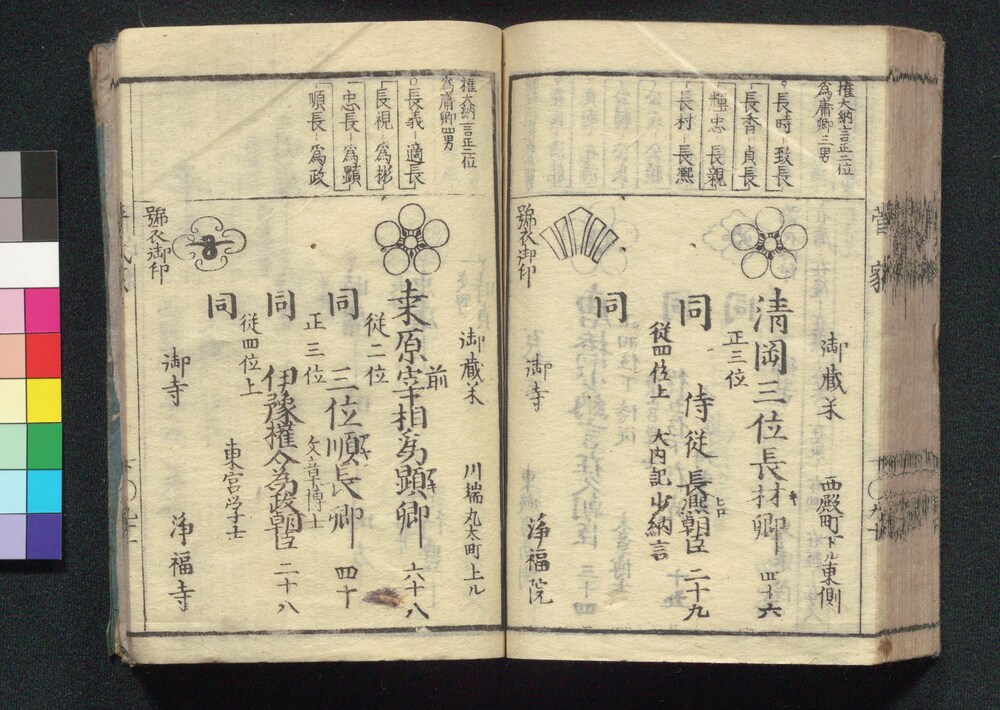 菅家
權大納言正二位
為庸卿三男
長時 致長
長香 貞長
輝忠 長親
長村 長凞
御蔵米 西殿町下ル東側
清岡三位長材卿 四十六
正三位
同 侍従長凞朝臣 二十九
従四位上 大内記少納言
同
御寺 浄福院
號衣御印
權大納言正二位
為庸卿四男
長義 適長
長視 為彬
忠長 為顕
順長 為政
御蔵米 川端丸太町上ル
前
桒原宰相為顕卿 六十八
従二位
同 三位順長卿 四十
正三位 文章博士
同 伊豫權介為政朝臣 二十八
従四位上 東宮学士
同
御寺 浄福寺
號衣御印